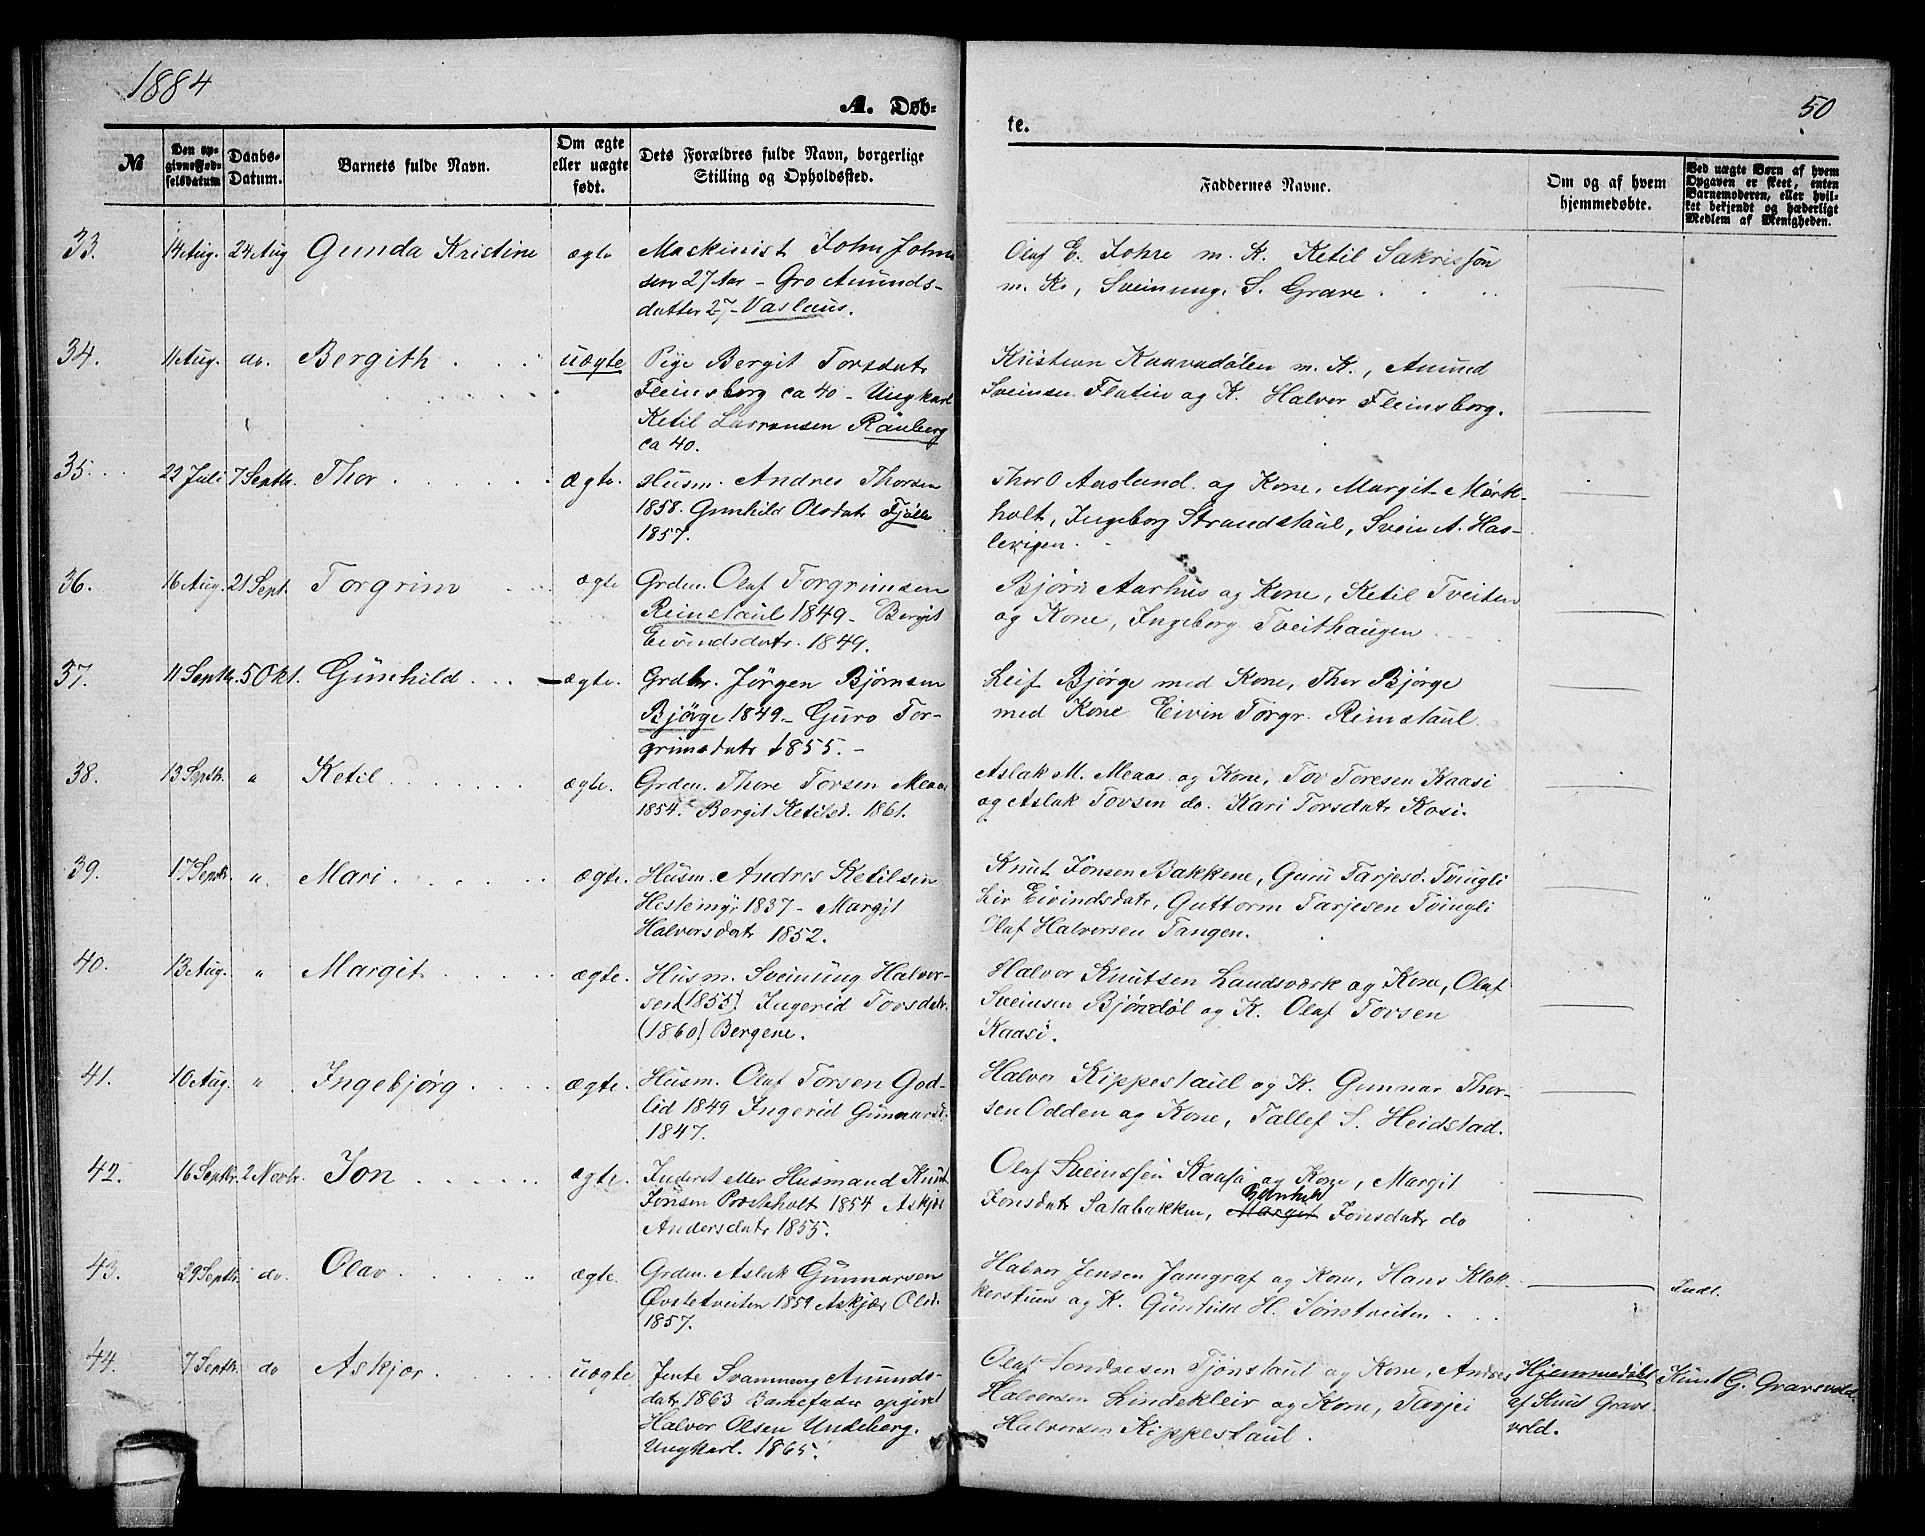 1884
A. Døb-
te.
50
№
Den op-
givne Fød-
selsdatum
Daabs-
Datum.
Barnets fulde Navn.
Om ægte
eller uægte
født.
Dets Forældres fulde Navn, borgerlige
Stilling og Opholdssted.
Faddernes Navne.
Om og af hvem
hjemmedøbte.
Ved uægte Børn af hvem
Opgaven er skeet, enten
Barnemoderen, eller hvil-
ket bekjendt og hæderligt
Medlem af Menigheden.
33. 14 Aug. 24 Aug Gunda Kristine ægte Maskinist John John
sen 27 Aar - Gro Amunds-
datter 27 - Vaslaus.
Olaf E. Johre m. K. Ketil Sakrissøn
m. K., Sveinung S. Grave.
34. 11 Aug. do. Bergith uægte Pige Bergit Torsdatr
Fleinsborg ca 40 - Ungkarl
Ketil Lavransen Rauberg
ca 40.
Kristian Kaavadalen m. K., Amund
Sveinsen Flatin og K. Halvor Fleinsborg.
35. 22 Juli 7 Septbr. Thor ægte. Husm. Andres Thorsen
1858. Gunhild Olsdatr Fjølle
1857.
Thor O Aasland og Kone, Margit Mørk-
holt, Ingeborg Strandstaul, Svein A. Has-
levigen.
36. 16 Aug. 21 Sept. Torgrim ægte Grdm. Olaf Torgrimsen
Reinstaul 1849 - Bergit
Eivindsdatr. 1849.
Bjørn Aarhus og Kone, Ketil Tveiten
og Kone, Ingeborg Tveithaugen
37. 11 Septbr. 5 Okt. Gunhild ægte. Grdbr. Jørgen Bjørnsen
Bjørge 1849 - Guro Tor-
grimsdatr 1855. -
Leif Bjørge med Kone, Thor Bjørge
med Kone Eivin Torgr. Reinstaul
38. 13 Septbr. " Ketil ægte. Grdm. Thore Torsen Meaas
1854. Bergit Ketilsd. 1861.
Aslak M. Meaas og Kone, Tov Toresen Kaasi
og Aslak Tovsen do. Kari Torsdatr Kosi.
39. 17 Septbr. " Mari ægte. Husm. Andres Ketilsen
Hestemyr 1837 - Margit
Halversdatr 1852.
Knut Jonsen Bakkene, Guru Tarjesd. Tvingli
Liv Eivindsdatr, Guttorm Tarjesen Tvingli
Olaf Halversen Tangen.
40. 13 Aug. " Margit ægte. Husm. Sveinung Halver-
sen (1855). Ingerid Tovsdatr.
(1860) Bergene.
Halvor Knutsen Landsværk og Kone, Olaf
Sveinsen Bjøndøl og K. Olaf Tovsen
Kaasi.
41. 10 Aug. " Ingebjørg ægte. Husm. Olaf Torsen God-
lid 1849 Ingerid Gunnarsd.
1847.
Halvor Kippestaul og K. Gunnar Thor-
sen Odden og Kone, Tallef S. Heidstad.
42. 16 Septbr. 2 Novbr. Jon ægte. Inderst eller Husmand Knut
Jonsen Prestholt 1854 Askjer
Andersdatr 1855.
Olaf Sveinssen Kaasa og Kone, Margit
Jonsdatr Salabakken, Margit Gunhild Jonsdatr do
43. 29 Septbr. do. Olav ægte. Grdm. Aslak Gunnarsen
Øvstetveiten 1859 Askjær Olsd.
1857.
Halvor Jensen Jamgraf og Kone, Hans Klok-
kerstuen og K. Gunhild H. Sønstveiten
Indl.
44. 7 Septbr. do Askjer uægte Jente Svanaug Amunds-
datr 1863 Barnefader opgivet
Halvor Olsen Undeberg.
Ungkarl. 1865.
Olaf Sondresen Tjønstaul og Kone, Andres
Halversen Lindekleiv og Kone, Tarjei
Halversen Kippestaul.
Hjemmedøbt
af Knut Gravs-
vold.
Knut G. Gravsvold